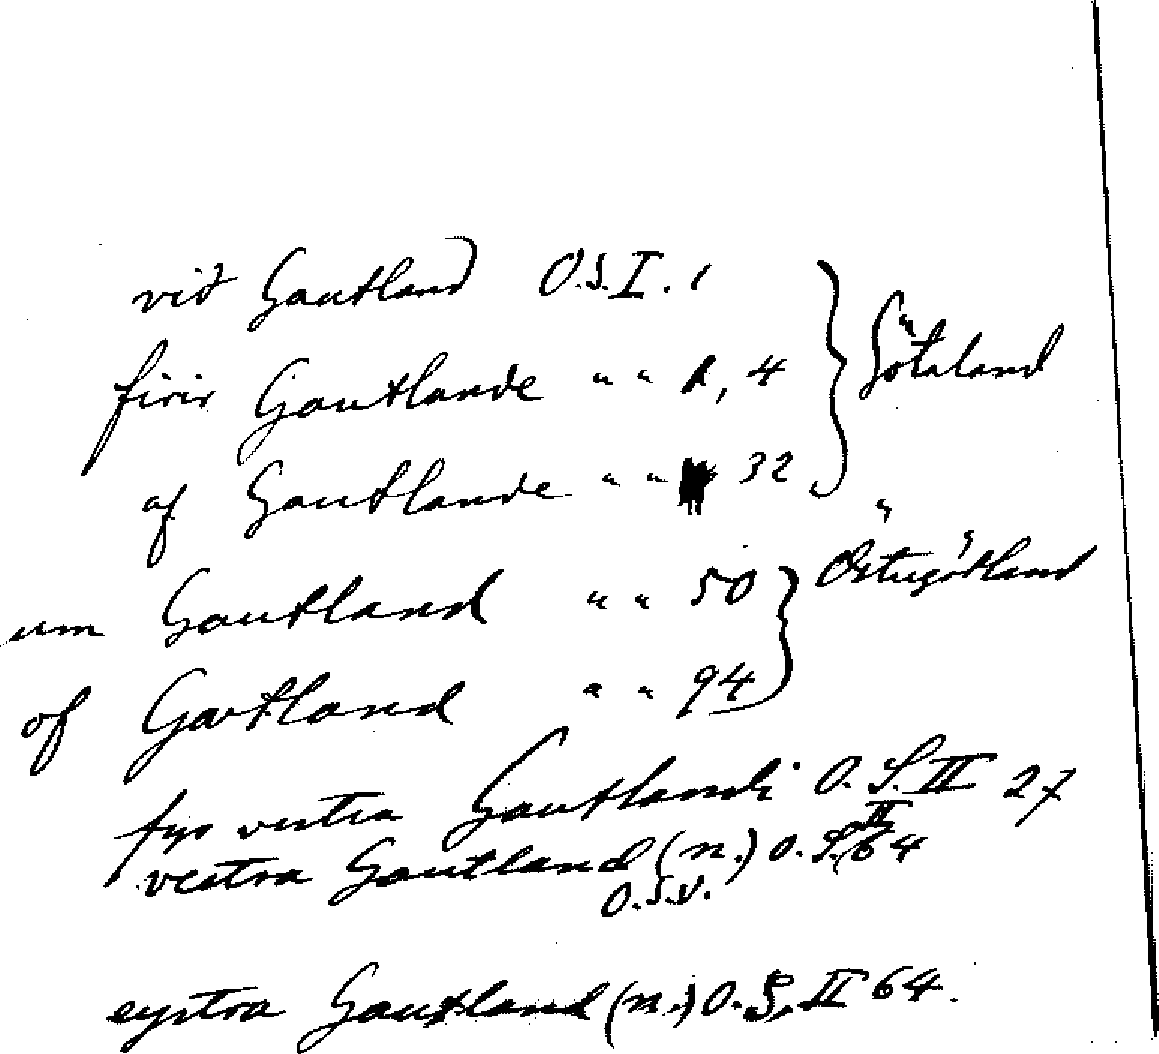 við Gautland O.S.I. 1
firir Gautlande " " 1, 4
Götaland
af Gautlande " " 32
um Gautland " " 50
Östergötland
of Gautland " " 94
fyr vestra Gautlandi O.S. II 27
vestra Gautland (n.) O.S. II 64
O.S.V.
eystra Gautland (n.) O.S. II 64.